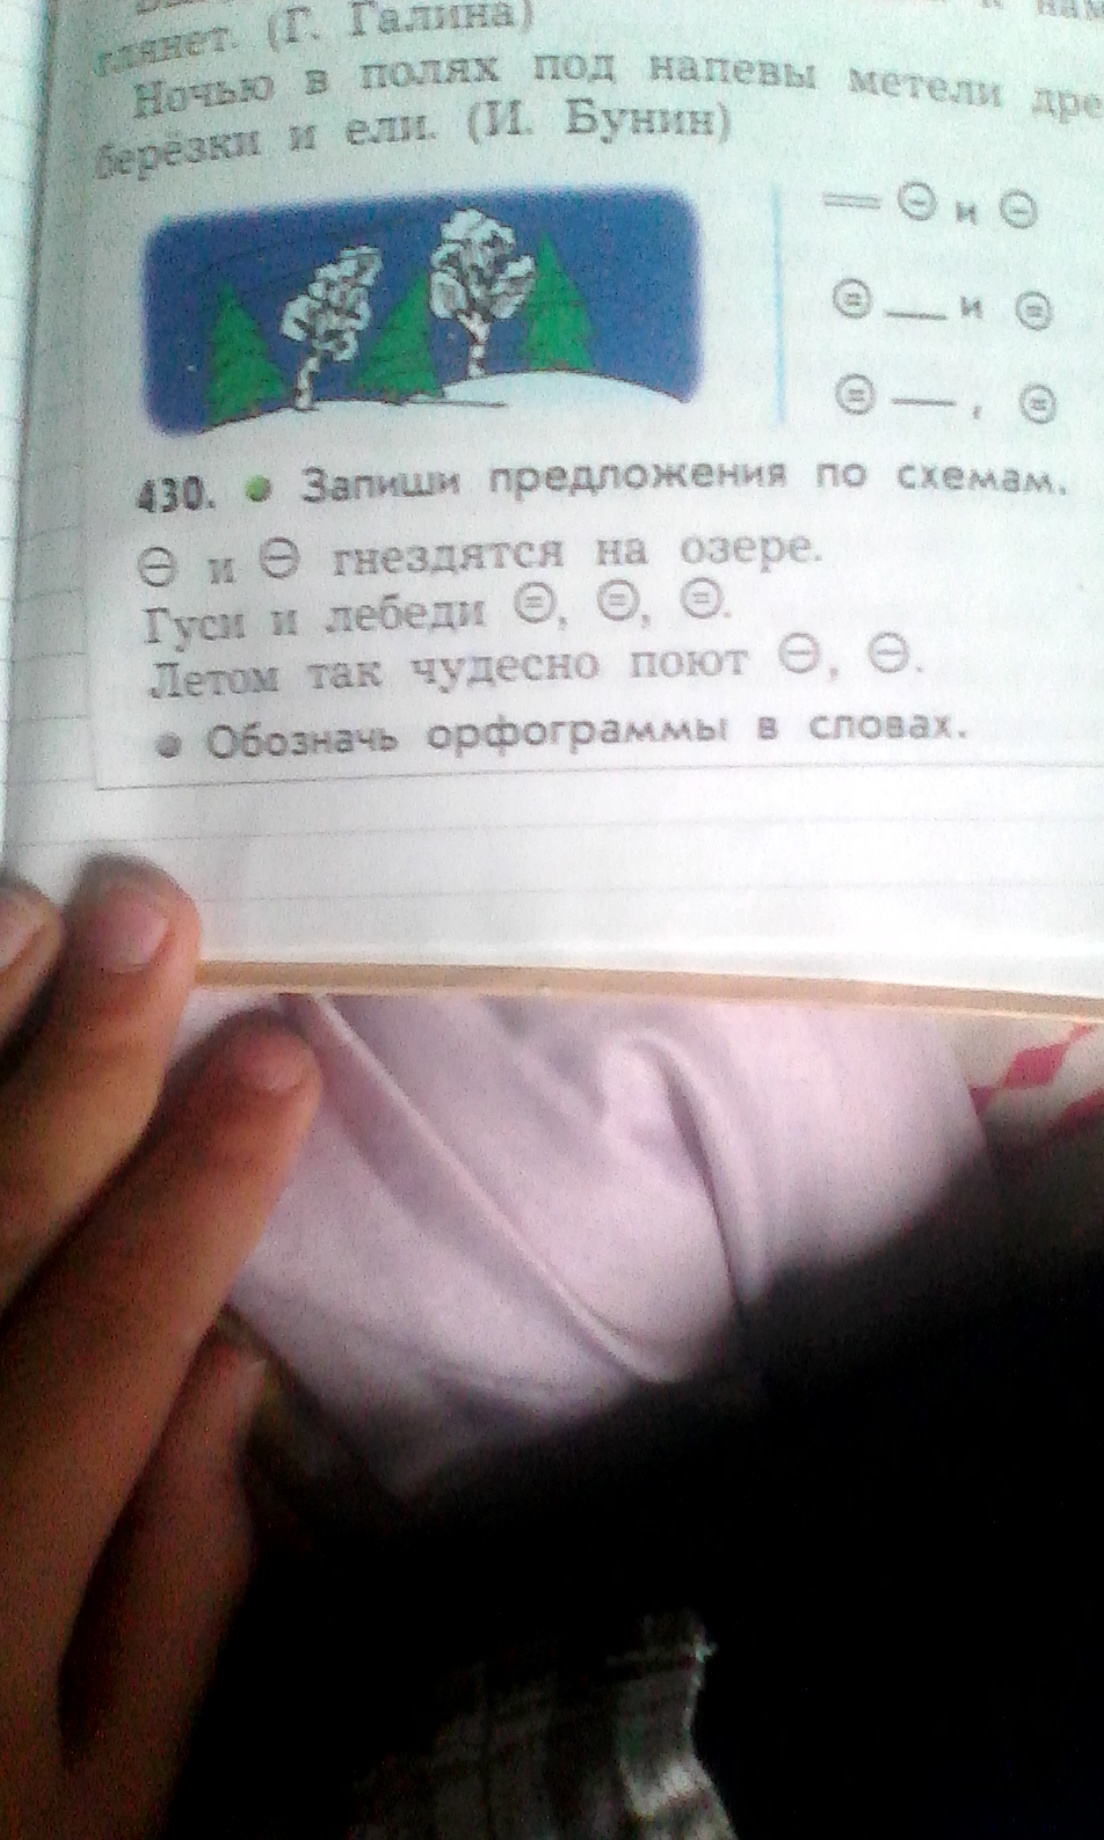 глянет. (Г. Галина)
нам
Ночью в полях под напевы метели дре
берёзки и ели. (И. Бунин)
и
и
,
430. Запиши предложения по схемам.
и гнездятся на озере.
Гуси и лебеди , , .
Летом так чудесно поют , .
Обозначь орфограммы в словах.